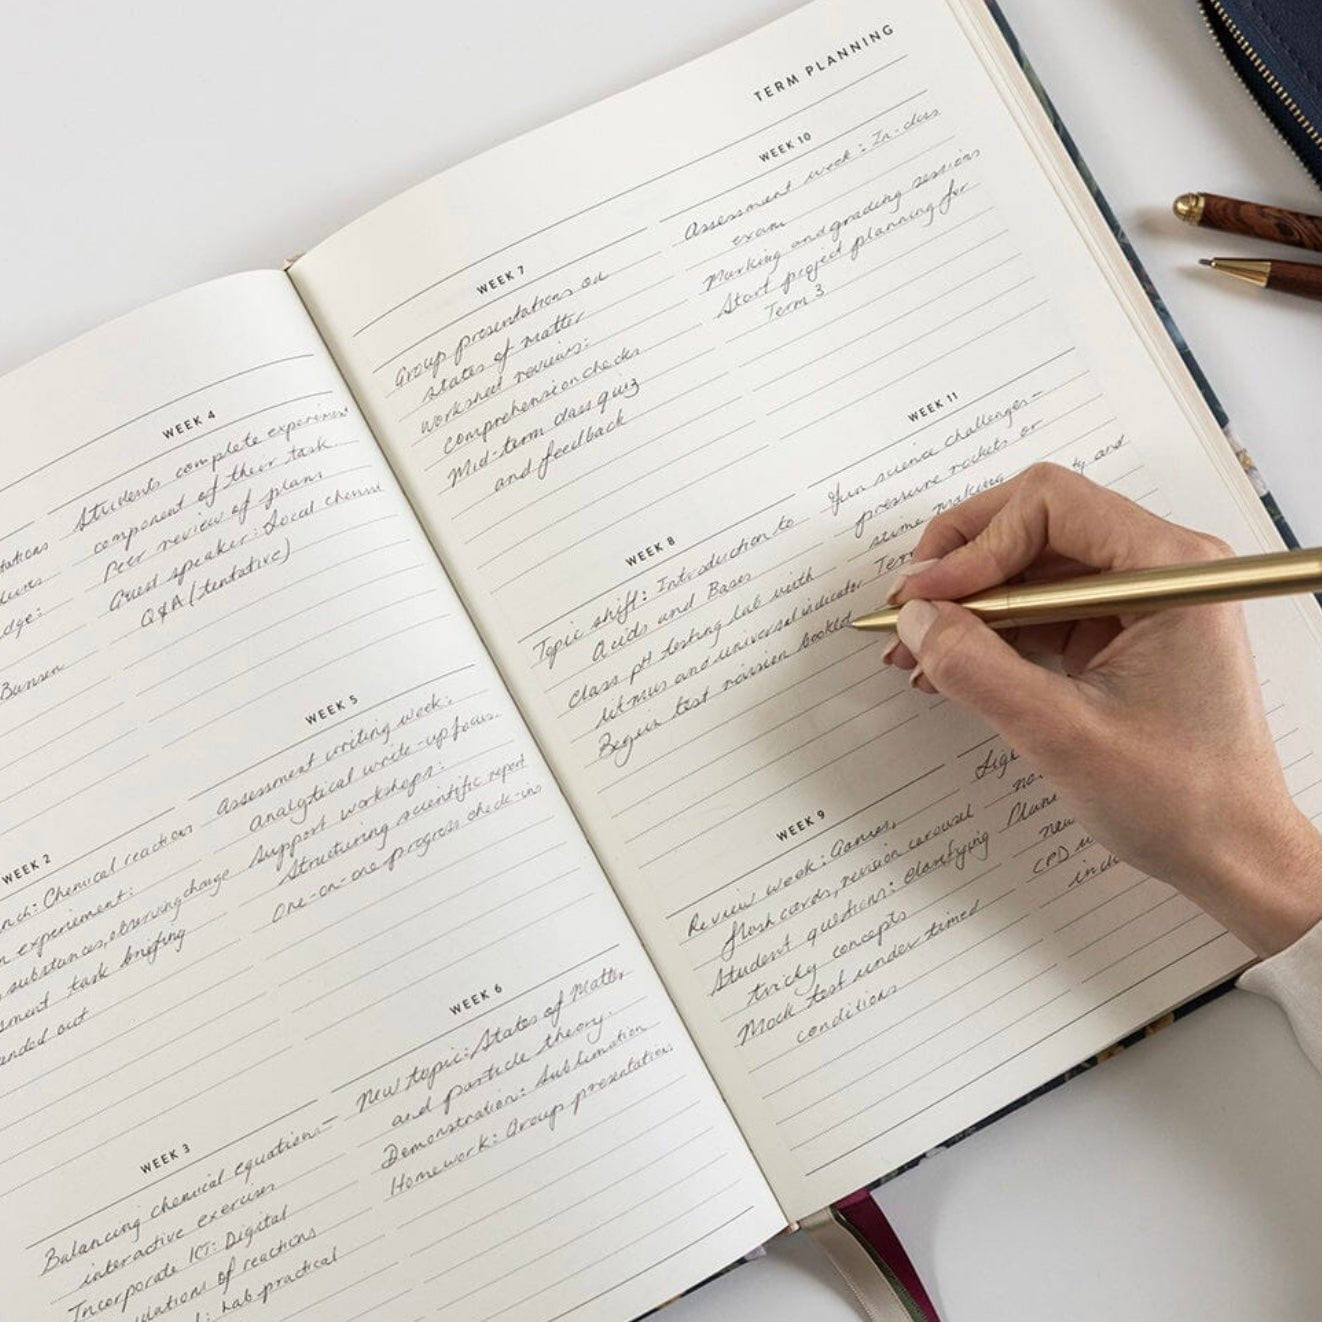 TERM PLANNING
WEEK 4
Students complete experiment
component of their task
Peer review of plans
Guest speaker: Local
Q&A (tentative)
WEEK 5
Assessment writing week:
analytical write-up focus.
Support workshops:
Structuring scientific report
One-on-one progress check-ins
WEEK 2
Chemical reactions
experiment:
substances, observing change
task briefing
out
WEEK 6
New topic: States of Matter
and particle theory.
Demonstration: Sublimation
Homework: Group presentations
WEEK 3
Balancing chemical equations-
interactive exercises
Incorporate ICT: Digital
of reactions
Lab practical
Bunsen
WEEK 7
Group presentations on
states of matter
worksheet reviews:
comprehension checks
Mid-term class quiz
and feedback
WEEK 8
Topic shift: Introduction to
Acids and Bases
Class pH testing lab with
litmus and universal indicator
Begin test revision booklet
WEEK 9
Review week: Games,
flash cards, revision carousel
Student questions: clarifying
tricky concepts
Mock test under timed
conditions
WEEK 10
Assessment week: In-class
exam
Marking and grading sessions
Start project planning for
Term 3
WEEK 11
Fun science challenges-
pressure rockets or
making
and
CPD